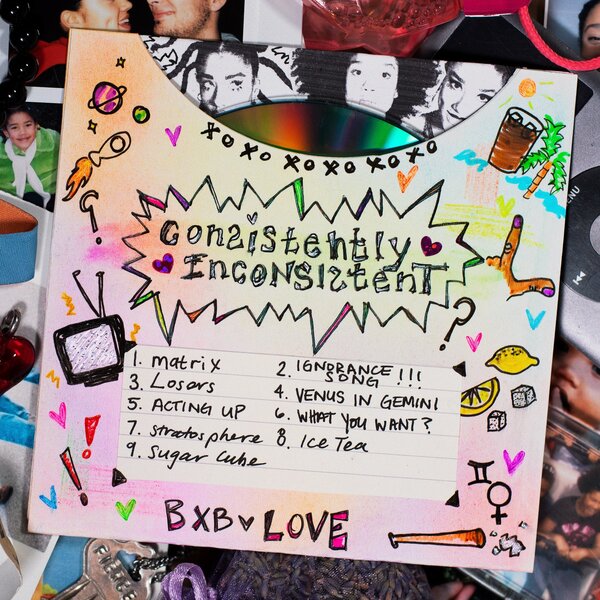 XO XO XO XO XO XO
Consistently
InCONSIstenT
1. matrix
2. IGNORANCE
SONG !!!
3. Losers
4. VENUS IN GEMINI
5. ACTING UP
6. WHAT YOU WANT?
7. stratosphere
8. Ice Tea
9. Sugar Cube
BXB LOVE
MENU